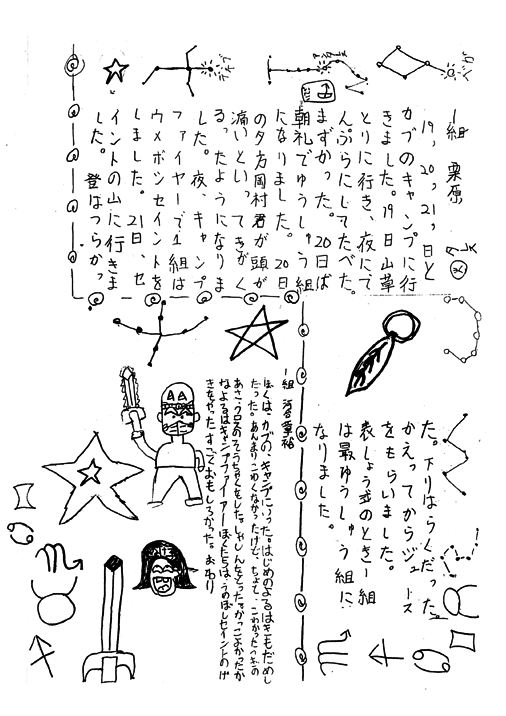 デネブ
アンタレス
ベガ
一組　栗原
19，20，21，日と
カブのキャンプに行
きました。19日山菜
とりに行き、夜にて
んぷらにしてたべた。
まずかった。20日ば
朝礼でゅうしゅう組
になりました。20日
の夕方岡村君が頭が
痛いといってきがく
るったようになりま
した。夜、キャンプ
ファイヤーで1組は
ウメボシセイントを
しました。21日、セ
イントの山に行きま
した。登はつらかっ
た。下りはらくだった
かえってからジュース
をもらいました。
表しょう式のとき一組
は最ゅうしゅう組に
なりました。
一組　河合
ぼくは、カブの、キャンプにいった。はじめのよるはきもだめし
だった。あんまりこわくなかったけど、ちょと、こわかった
あさ
なよるはキャンプファイアーぼくたちは、うめぼしセイントのげ
きをやった すごくおもしろかった。おわり